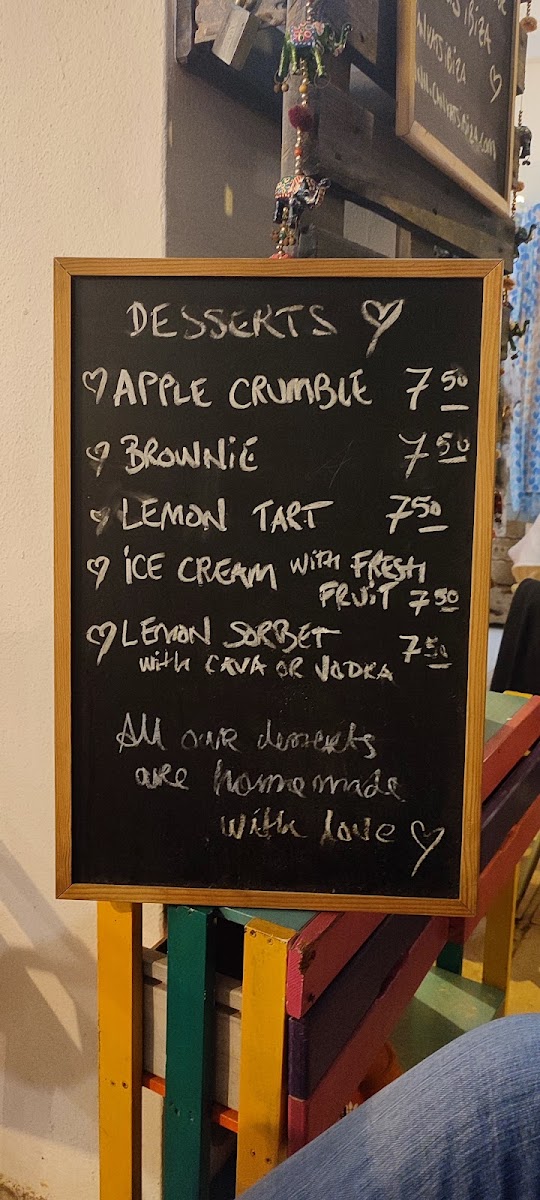 IBIZA
www.canvatsibiza.com
DESSERTS
APPLE CRUMBLE 7 50
BROWNiE 7 50
LEMON TART 7 50
iCE CREAM with FRESH
FRUiT 7 50
LEMON SORBET 7 50
with CAVA OR VODKA
All our desserts
are homemade
with love